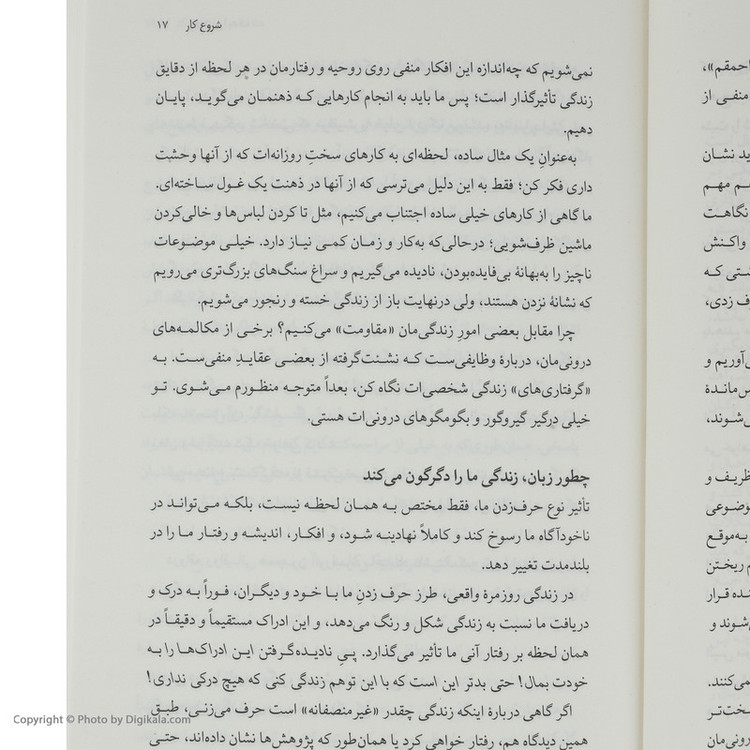 شروع کار ۱۷
نمی‌شویم که چه‌اندازه این افکار منفی روی روحیه و رفتارمان در هر لحظه از دقایق
زندگی تأثیرگذار است؛ پس ما باید به انجام کارهایی که ذهنمان می‌گوید، پایان
دهیم.
به‌عنوانِ یک مثال ساده، لحظه‌ای به کارهای سختِ روزانه‌ات که از آنها وحشت
داری فکر کن؛ فقط به این دلیل می‌ترسی که از آنها در ذهنت یک غول ساخته‌ای.
ما گاهی از کارهای خیلی ساده اجتناب می‌کنیم، مثل تا کردن لباس‌ها و خالی‌کردن
ماشین ظرف‌شویی؛ درحالی‌که به‌کار و زمان کمی نیاز دارد. خیلی موضوعات
ناچیز را به‌بهانهٔ بی‌فایده‌بودن، نادیده می‌گیریم و سراغ سنگ‌های بزرگ‌تری می‌رویم
که نشانهٔ نزدن هستند، ولی درنهایت باز از زندگی خسته و رنجور می‌شویم.
چرا مقابل بعضی امورِ زندگی‌مان «مقاومت» می‌کنیم؟ برخی از مکالمه‌های
درونی‌مان، دربارهٔ وظایفی‌ست که نشئت‌گرفته از بعضی عقایدِ منفی‌ست. به
«گرفتاری‌های» زندگی شخصی‌ات نگاه کن، بعداً متوجه منظورم می‌شوی. تو
خیلی درگیر گیروگور و بگومگوهای درونی‌ات هستی.
چطور زبان، زندگی ما را دگرگون می‌کند
تأثیر نوع حرف‌زدن ما، فقط مختص به همان لحظه نیست، بلکه می‌تواند در
ناخودآگاه ما رسوخ کند و کاملاً نهادینه شود، و افکار، اندیشه و رفتار ما را در
بلندمدت تغییر دهد.
در زندگی روزمرهٔ واقعی، طرز حرف زدنِ ما با خود و دیگران، فوراً به درک و
دریافت ما نسبت به زندگی شکل و رنگ می‌دهد، و این ادراک مستقیماً و دقیقاً در
همان لحظه بر رفتار آنی ما تأثیر می‌گذارد. پیِ نادیده‌گرفتن این ادراک‌ها را به
خودت بمال! حتی بدتر این است که با این توهم زندگی کنی که هیچ درکی نداری!
اگر گاهی دربارهٔ اینکه زندگی چقدر «غیرمنصفانه» است حرف می‌زنی، طبق
همین دیدگاه هم، رفتار خواهی کرد یا همان‌طور که پژوهش‌ها نشان داده‌اند، حتی
احمقم»،
منفی از
ید نشان
ـم مهم
نگاهت
واکنش
شتی که
ف زدی،
ی‌آوریم و
س‌ماندهٔ
شوند،
ظریف و
وضوعی
به‌موقع
م ریختن
نده قرار
شوند و
می‌کنند.
سخت‌تر
رونی‌مان
Copyright © Photo by Digikala.com